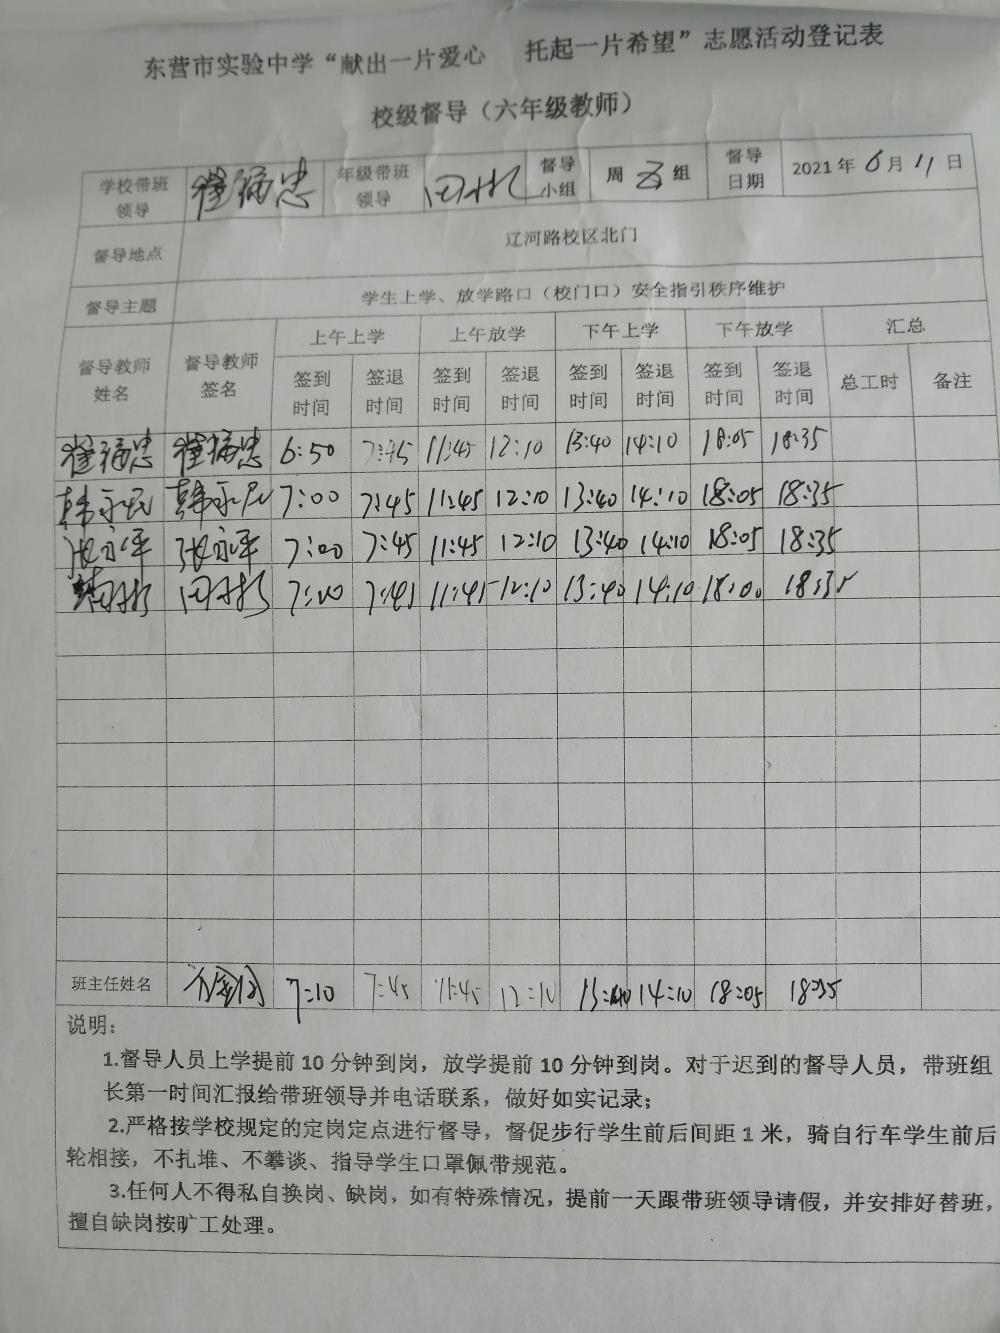 东营市实验中学“献出一片爱心 托起一片希望”志愿活动登记表
校级督导（六年级教师）
学校带班领导 崔福忠 年级带班领导 督导小组 周五组 督导日期 2021年6月11日
督导地点 辽河路校区北门
督导主题 学生上学、放学路口（校门口）安全指引秩序维护
督导教师姓名 督导教师签名 上午上学 上午放学 下午上学 下午放学 汇总
签到时间 签退时间 签到时间 签退时间 签到时间 签退时间 签到时间 签退时间 总工时 备注
崔福忠 崔福忠 6:50 7:45 11:45 12:10 13:40 14:10 18:05 18:35
韩永民 韩永民 7:00 7:45 11:45 12:10 13:40 14:10 18:05 18:35
张永平 张永平 7:00 7:45 11:45 12:10 13:40 14:10 18:05 18:35
7:00 7:45 11:45 12:10 13:40 14:10 18:00 18:35
班主任姓名 7:10 7:45 11:45 12:10 13:40 14:10 18:05 18:35
说明：
1.督导人员上学提前10分钟到岗，放学提前10分钟到岗。对于迟到的督导人员，带班组
长第一时间汇报给带班领导并电话联系，做好如实记录；
2.严格按学校规定的定岗定点进行督导，督促步行学生前后间距1米，骑自行车学生前后
轮相接，不扎堆、不攀谈、指导学生口罩佩带规范。
3.任何人不得私自换岗、缺岗，如有特殊情况，提前一天跟带班领导请假，并安排好替班，
擅自缺岗按旷工处理。